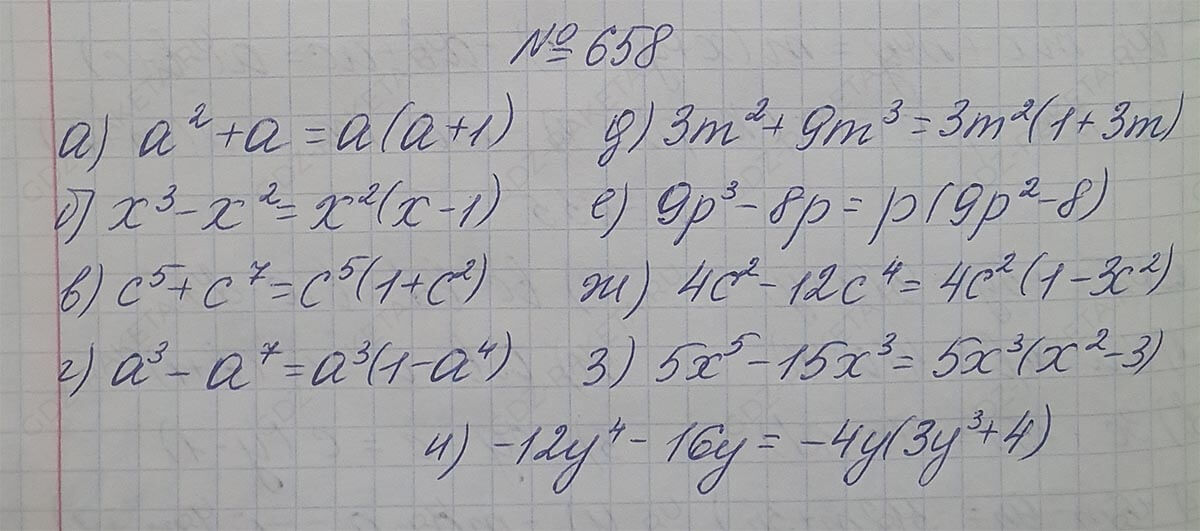 № 658
а) a² + a = a(a+1) д) 3m² + 9m³ = 3m²(1+3m)
б) x³ - x² = x²(x-1) е) 9p³ - 8p = p(9p² - 8)
в) c⁵ + c⁷ = c⁵(1+c²) ж) 4c² - 12c⁴ = 4c²(1-3c²)
г) a³ - a⁷ = a³(1-a⁴) з) 5x⁵ - 15x³ = 5x³(x² - 3)
и) -12y⁴ - 16y = -4y(3y³+4)